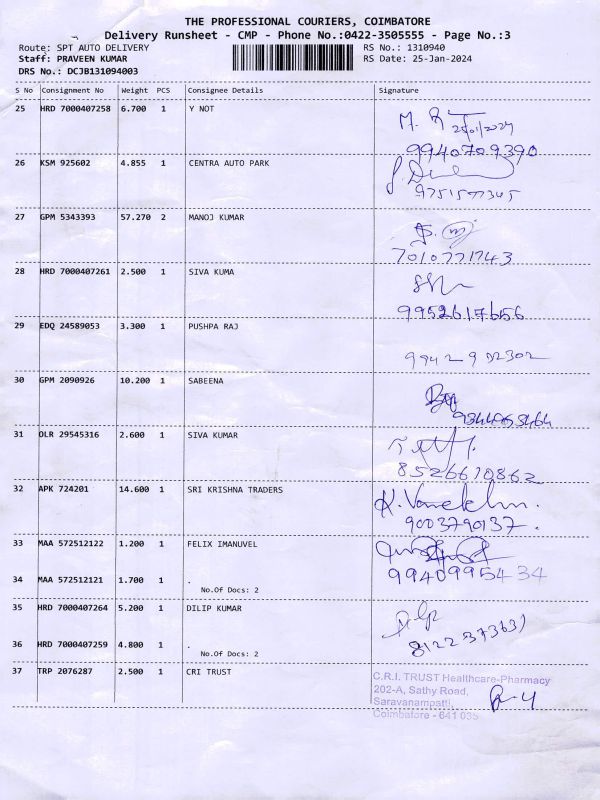 THE PROFESSIONAL COURIERS, COIMBATORE
Delivery Runsheet - CMP - Phone No.:0422-3505555 - Page No.:3
Route: SPT AUTO DELIVERY RS No.: 1310940
Staff: PRAVEEN KUMAR RS Date: 25-Jan-2024
DRS No.: DCJB131094003
S No Consignment No Weight PCS Consignee Details Signature
25 HRD 7000407258 6.700 1 Y NOT
M. 25/01/2024
9940709390
26 KSM 925602 4.855 1 CENTRA AUTO PARK
9751577345
27 GPM 5343393 57.270 2 MANOJ KUMAR
7010771743
28 HRD 7000407261 2.500 1 SIVA KUMA
9952617656
29 EDQ 24589053 3.300 1 PUSHPA RAJ
9942902302
30 GPM 2090926 10.200 1 SABEENA
31 DLR 29545316 2.600 1 SIVA KUMAR
8526610862
32 APK 724201 14.600 1 SRI KRISHNA TRADERS
9003790137.
33 MAA 572512122 1.200 1 FELIX IMANUVEL
9940995434
34 MAA 572512121 1.700 1 .
No.Of Docs: 2
35 HRD 7000407264 5.200 1 DILIP KUMAR
Dilp
8122373631
36 HRD 7000407259 4.800 1 .
No.Of Docs: 2
37 TRP 2076287 2.500 1 CRI TRUST
C.R.I. TRUST Healthcare-Pharmacy
202-A, Sathy Road,
Saravanampatti,
Coimbatore - 641 035